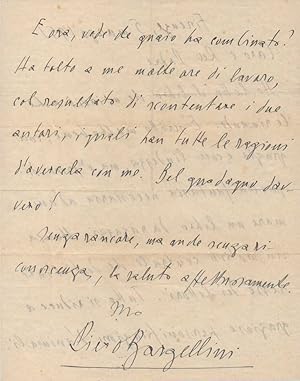 E ora, vede che guaio ha combinato?
Ha tolto a me molte ore di lavoro,
col resultato di scontentare i due
autori, i quali han tutte le ragioni
d'avercela con me. Bel guadagno dav
vero!
Senza rancore, ma anche senza ri
conoscenza, la saluto affettuosamente.
suo
Piero Bargellini